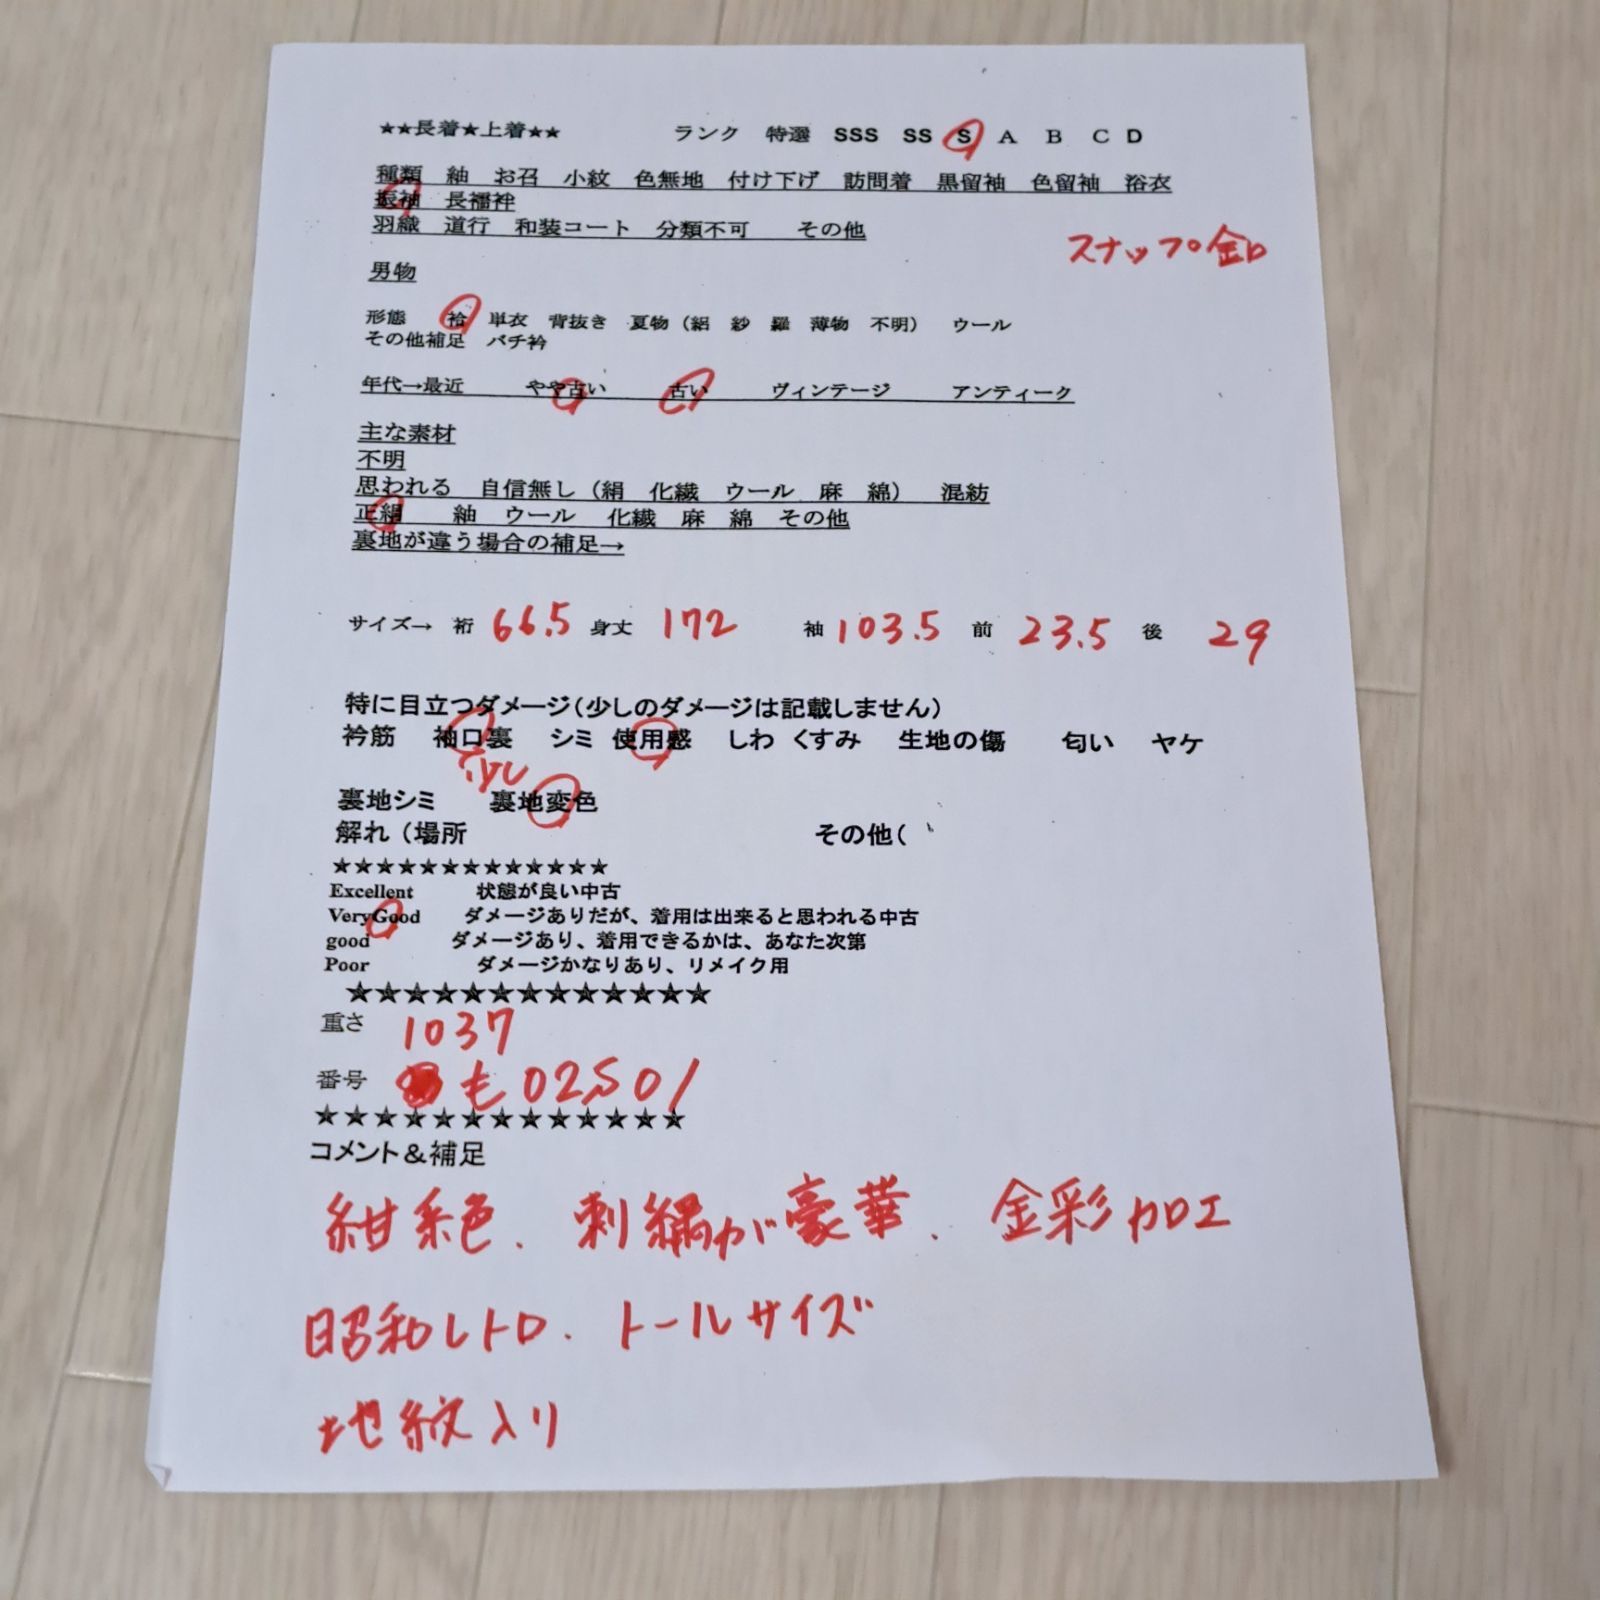 ★★長着★上着★★ ランク 特選 SSS SS S A B C D
種類 紬 お召 小紋 色無地 付け下げ 訪問着 黒留袖 色留袖 浴衣
振袖 長襦袢
羽織 道行 和装コート 分類不可 その他
スナップ釦
男物
形態 袷 単衣 背抜き 夏物（絽 紗 羅 薄物 不明） ウール
その他補足 バチ衿
年代→最近 やや古い 古い ヴィンテージ アンティーク
主な素材
不明
思われる 自信無し（絹 化繊 ウール 麻 綿） 混紡
正絹 紬 ウール 化繊 麻 綿 その他
裏地が違う場合の補足→
サイズ→ 裄 66.5 身丈 172 袖 103.5 前 23.5 後 29
特に目立つダメージ（少しのダメージは記載しません）
衿筋 袖口裏 シミ 使用感 しわ くすみ 生地の傷 匂い ヤケ
裏地シミ 裏地変色
解れ（場所 その他（
★★★★★★★★★★★★★
Excellent 状態が良い中古
VeryGood ダメージありだが、着用は出来ると思われる中古
good ダメージあり、着用できるかは、あなた次第
Poor ダメージかなりあり、リメイク用
★★★★★★★★★★★★★
重さ 1037
番号 も02501
★★★★★★★★★★★★★
コメント＆補足
紺系色、刺繍が豪華、金彩加工
昭和レトロ、トールサイズ
地紋入り